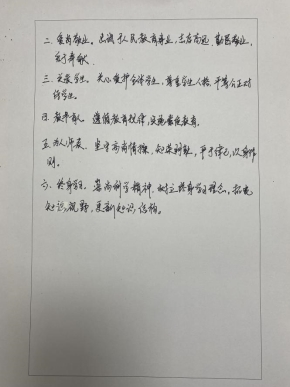 二、爱岗敬业。忠诚于人民教育事业，志存高远，勤恳敬业，
乐于奉献。
三、关爱学生。关心爱护全体学生，尊重学生人格，平等公正对
待学生。
四、教书育人。遵循教育规律，实施素质教育。
五、为人师表。坚守高尚情操，知荣明耻，严于律己，以身作
则。
六、终身学习。崇尚科学精神，树立终身学习理念，拓宽
知识视野，更新知识结构。